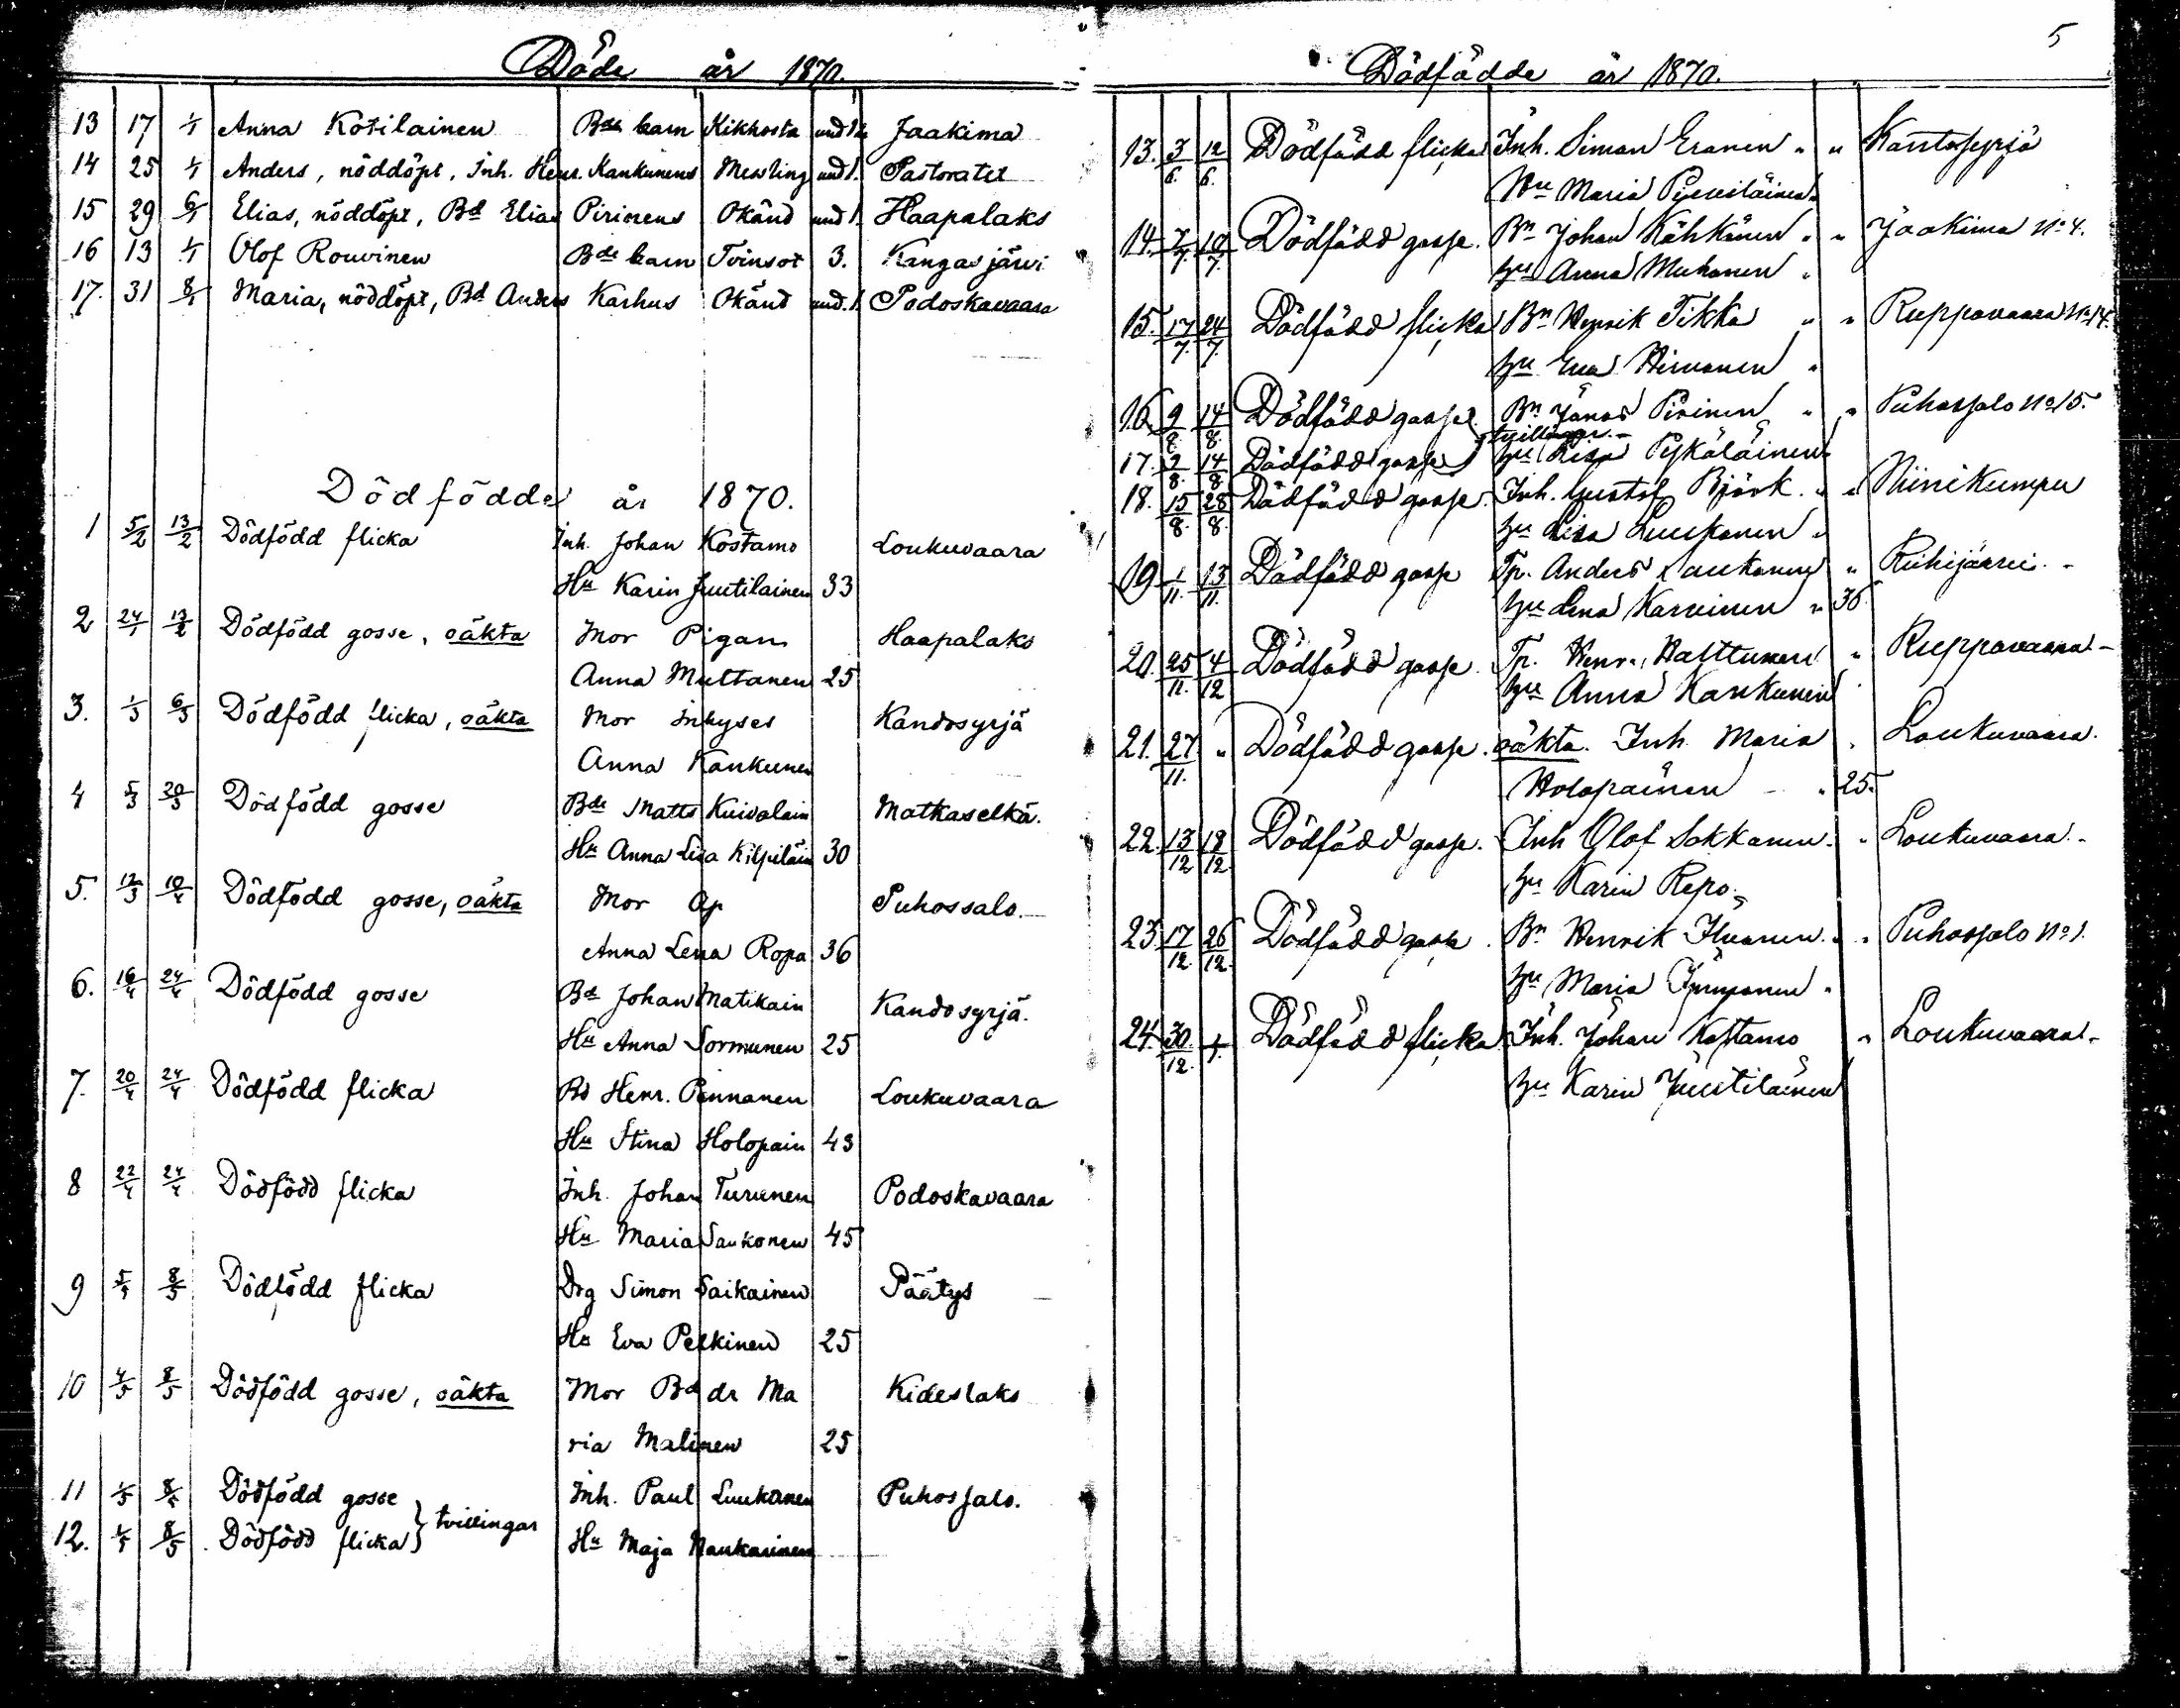 Döde år 1870.
13 17 1/1 Anna Kotilainen Bde barn Kikhosta und 1 Jaakima
14 25 1/1 Anders, nöddöpt, Inh. Henr. Kankunens Messling und 1. Pastoratet
15 29 6/1 Elias, nöddöpt, Bd Elias Pirinens Okänd und 1. Haapalaks
16 13 1/1 Olof Rouvinen Bde barn Tvinsot 3. Kangasjärvi
17. 31 8/1 Maria, nöddöpt, Bd Anders Karhus Okänd und. 1. Podoskavaara
Dödfödde år 1870.
1 5/2 13/2 Dödfödd flicka Inh. Johan Kostamo Loukuvaara
Hu Karin Juutilainen 33
2 24/1 13/2 Dödfödd gosse, oäkta Mor Pigan Haapalaks
Anna Muttanen 25
3. 1/3 6/3 Dödfödd flicka, oäkta Mor inhyses Kandosyrjä
Anna Kankunen
4 5/3 20/3 Dödfödd gosse Bde Matts Kuivalain Matkaselkä.
Hu Anna Lisa Kilpiläin 30
5. 12/3 10/4 Dödfödd gosse, oäkta Mor Ap Puhossalo.
Anna Lena Ropa 36
6. 16/4 24/4 Dödfödd gosse Bd Johan Matikain Kandosyrjä.
Hu Anna Sormunen 25
7. 20/4 24/4 Dödfödd flicka Bd Henr. Pennanen Loukuvaara
Hu Stina Holopain 43
8 22/4 24/4 Dödfödd flicka Inh. Johan Turunen Podoskavaara
Hu Maria Saukonen 45
9 5/5 8/5 Dödfödd flicka Drg Simon Saikainen Päätys
Hu Eva Pelkinen 25
10 4/5 8/5 Dödfödd gosse, oäkta Mor Bd dr Ma Kideslaks
ria Malinen 25
11 1/5 8/5 Dödfödd gosse Inh. Paul Luukanen Puhossalo.
tvillingar
12. 1/5 8/5 Dödfödd flicka Hu Maja Naukarinen
5
Dödfödde år 1870.
13. 3/6. 12/6. Dödfödd flicka Inh. Simon Eronen " " Kantosyrjä
Hu Maria Pierviläinen "
14. 7/7. 10/7. Dödfödd gosse. Bn Johan Kähkönen " " Jaakima No 4.
hu Anna Muhonen "
15. 17/7. 24/7. Dödfödd flicka Bn Henrik Tikka " " Ruppovaara No 14.
hu Eva Hirvonen "
16. 9/8. 14/8. Dödfödd gosse Bn Jonas Pirinen " " Puhossalo No 15.
tvillingar.
17. 9/8. 14/8. Dödfödd gosse hu Lisa Pyköläinen
18. 15/8. 28/8. Dödfödd gosse. Inh. Gustaf Björk. " " Niinikumpu
hu Lisa Luukanen "
19 1/11. 13/11. Dödfödd gosse Tp. Anders Laukanen " Riihijärvi. -
hu Lena Karvinen " 36.
20. 25/11. 4/12 Dödfödd gosse. Tp. Henr. Halttunen " Ruppovaara -
hu Anna Kankunen
21. 27/11. " Dödfödd gosse. oäkta. Inh. Maria " Loukuvaara.
Holopainen - " 25.
22. 13/12 18/12. Dödfödd gosse. Inh Olof Sokkanen. " Loukuvaara. -
hu Karin Repo.
23 17/12. 26/12. Dödfödd gosse. Bn Henrik Ihvonen. " " Puhossalo No 1.
hu Maria
24. 30./12. 1/1. Dödfödd flicka Inh. Johan Kostamo " Loukuvaara. -
hu Karin Juutilainen